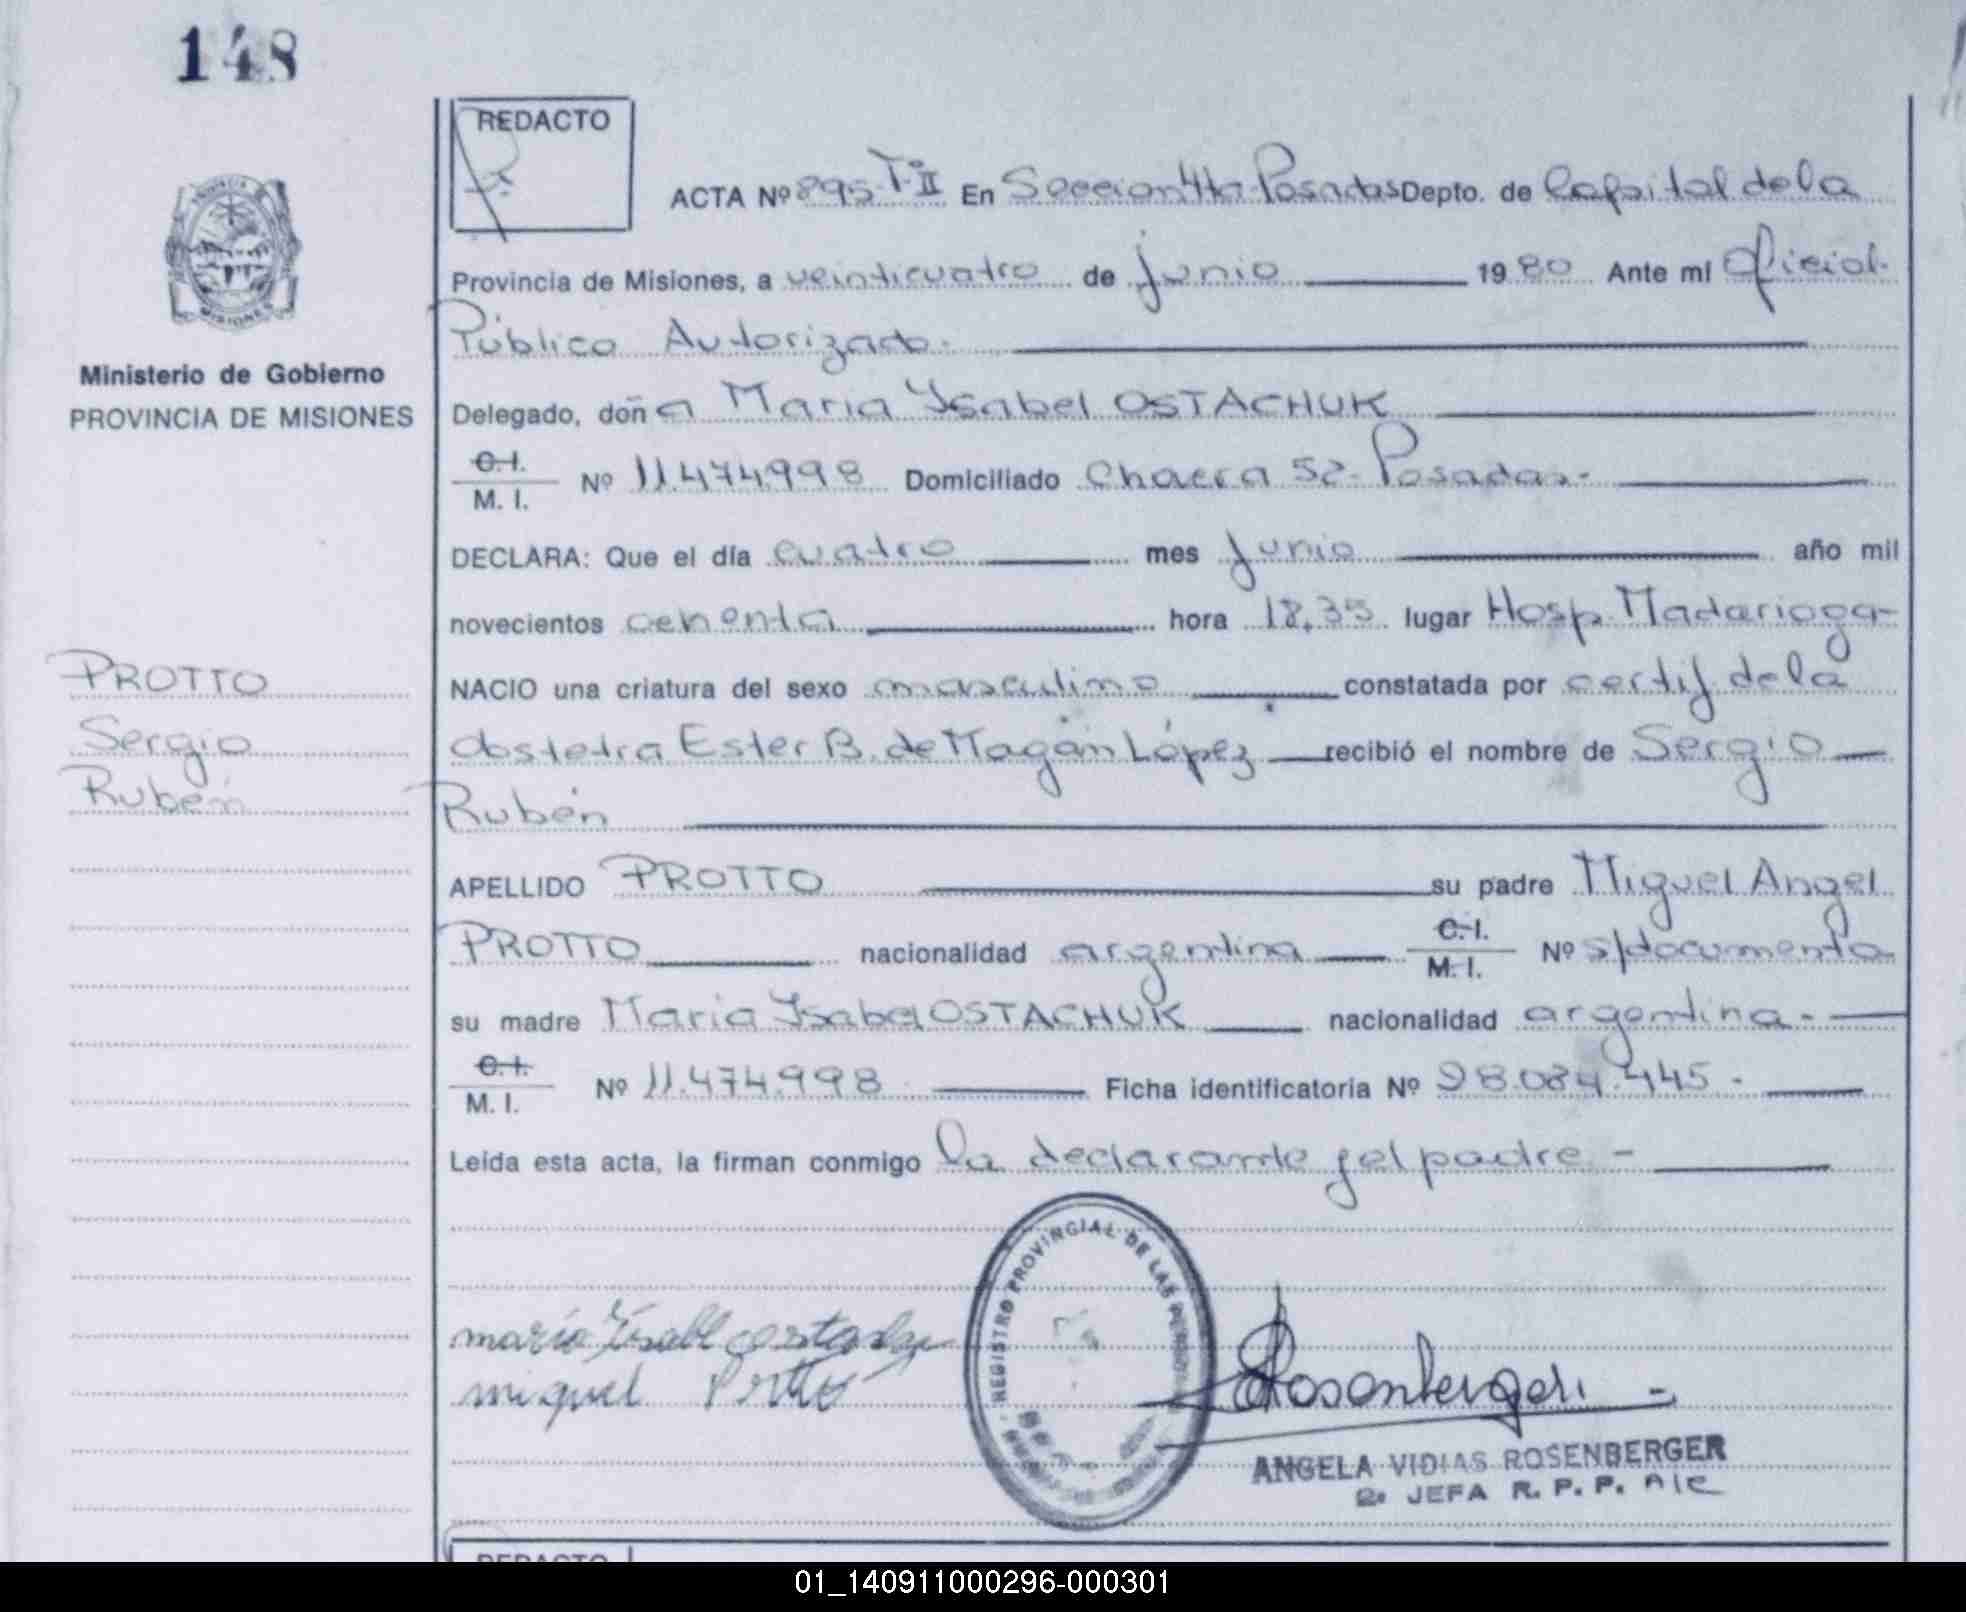 148
REDACTO
ACTA Nº 895-Tº II En Seccion 4ta Posadas Depto. de Capital de la
Provincia de Misiones, a veinticuatro de junio 1980 Ante mí Oficial
Público Autorizado.
Ministerio de Gobierno
PROVINCIA DE MISIONES
Delegado, doña Maria Ysabel OSTACHUK
C.I.
M. I. Nº 11.474.998 Domiciliado Chacra 52-Posadas.-
DECLARA: Que el día cuatro mes junio año mil
novecientos ochenta hora 18,35 lugar Hosp. Madariaga-
PROTTO
Sergio
Rubén
NACIO una criatura del sexo masculino constatada por certif de la
obstetra Ester B. de Magán López recibió el nombre de Sergio
Rubén
APELLIDO PROTTO su padre Miguel Angel
PROTTO nacionalidad argentina C.I. M.I. Nº s/documento
su madre Maria Ysabel OSTACHUK nacionalidad argentina.-
C.I.
M. I. Nº 11.474.998 Ficha identificatoria Nº 28.084.445-
Leída esta acta, la firman conmigo la declarante y el padre -
REGISTRO PROVINCIAL DE LAS PERSONAS
maría Ysabel
miguel Protto
Rosenberger
ANGELA VIDIAS ROSENBERGER
2º JEFA R. P. P. A/C
REDACTO
01_140911000296-000301